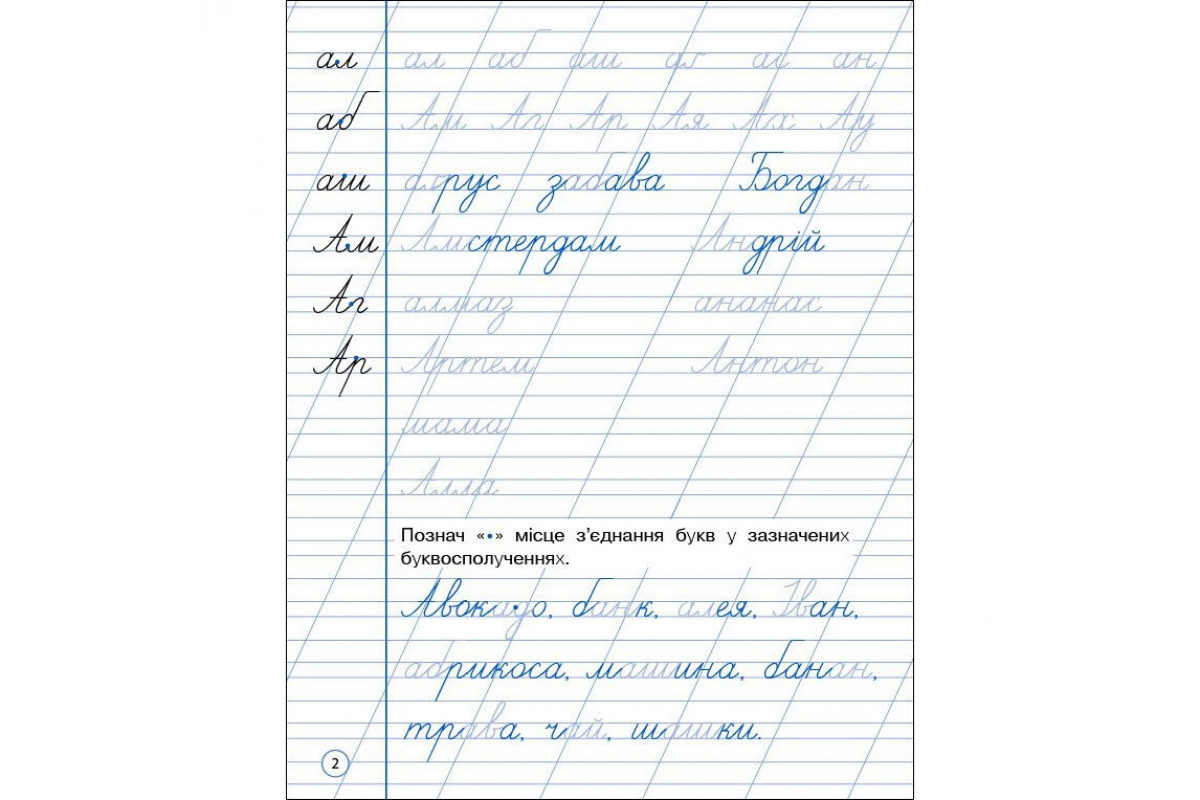 ал ал аб аш аг ас ан
аб Ам Аг Ар Ая Ах Ау
аш аґрус забава Богдан
Ам Амстердам Андрій
Аг алмаз ананас
Ар Артем Антон
мама
Алла
Познач «•» місце з’єднання букв у зазначених
буквосполученнях.
Авокадо, банк, алея, Іван,
абрикоса, машина, банан,
трава, чай, шашки.
2